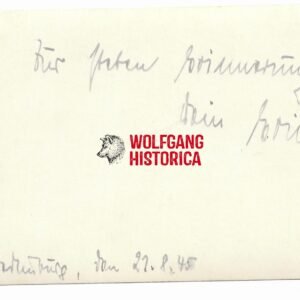 Zur steten Erinnerung
Dein
WOLFGANG
HISTORICA
den 21.8.45